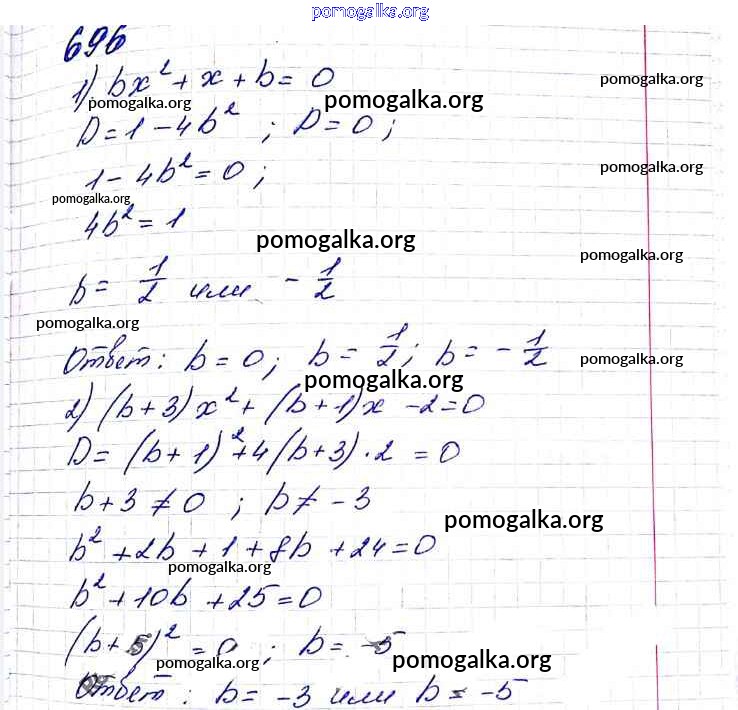 pomogalka.org
696
1) bx² + x + b = 0
pomogalka.org
pomogalka.org pomogalka.org
D = 1 - 4b² ; D = 0 ;
1 - 4b² = 0 ;
pomogalka.org
pomogalka.org
4b² = 1
pomogalka.org
pomogalka.org
b = 1/2 или - 1/2
pomogalka.org
Ответ: b = 0; b = 1/2; b = - 1/2
pomogalka.org
pomogalka.org
2) (b + 3)x² + (b + 1)x - 2 = 0
D = (b + 1)² + 4(b + 3) · 2 = 0
b + 3 ≠ 0 ; b ≠ - 3
pomogalka.org
b² + 2b + 1 + 8b + 24 = 0
pomogalka.org
b² + 10b + 25 = 0
(b + 5)² = 0 ; b = -5
pomogalka.org pomogalka.org
Ответ : b = -3 или b = -5